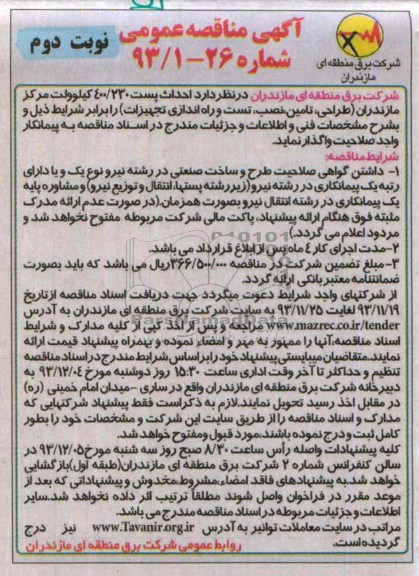 آگهی مناقصه عمومی
شماره ۲۶-۹۳/۱
نوبت دوم
شرکت برق منطقه ای
مازندران
شرکت برق منطقه ای مازندران درنظردارد احداث پست ۴۰۰/۲۳۰ کیلوولت مرکز
مازندران (طراحی، تامین،نصب، تست و راه اندازی تجهیزات) را برابر شرایط ذیل و
بشرح مشخصات فنی و اطلاعات و جزئیات مندرج در اسناد مناقصه به پیمانکار
واجد صلاحیت واگذار نماید.
شرایط مناقصه:
۱- داشتن گواهی صلاحیت طرح و ساخت صنعتی در رشته نیرو نوع یک و یا دارای
رتبه یک پیمانکاری در رشته نیرو(زیر رشته پستها، انتقال و توزیع نیرو) و مشاوره پایه
یک پیمانکاری در رشته انتقال نیرو بصورت همزمان.(در صورت عدم ارائه مدرک
مثبته فوق هنگام ارائه پیشنهاد، پاکت مالی شرکت مربوطه مفتوح نخواهد شد و
مردود اعلام می گردد.)
۲-مدت اجرای کار ۴ ماه پس از ابلاغ قرارداد می باشد.
۳-مبلغ تضمین شرکت در مناقصه ۳۶۶/۵۰۰/۰۰۰ریال می باشد که باید بصورت
ضمانتنامه معتبر بانکی ارائه گردد.
از شرکتهای واجد شرایط دعوت میگردد جهت دریافت اسناد مناقصه ازتاریخ
۹۳/۱۱/۱۹ لغایت ۹۳/۱۱/۲۵ به سایت شرکت برق منطقه ای مازندران به آدرس
www.mazrec.co.ir/tender مراجعه و پس از اخذ کپی از کلیه مدارک و شرایط
اسناد مناقصه،آنها را ممهور به مهر و امضاء نموده و بهمراه پیشنهاد قیمت ارائه
نمایند.متقاضیان میبایستی پیشنهاد خود را بر اساس شرایط مندرج در اسناد مناقصه
تنظیم و حداکثر تا آخر وقت اداری ساعت ۱۵:۳۰ روز دوشنبه مورخ ۹۳/۱۲/۰۴ به
دبیرخانه شرکت برق منطقه ای مازندران واقع در ساری -میدان امام خمینی (ره)
در مقابل اخذ رسید تحویل نمایند.لازم به ذکراست فقط پیشنهاد شرکتهایی که
مدارک و اسناد مناقصه را از طریق سایت این شرکت و مشخصات خود را بطور
کامل ثبت و درج نموده باشند،مورد قبول ومفتوح خواهد شد.
کلیه پیشنهادات واصله رأس ساعت ۸/۳۰ صبح روز سه شنبه مورخ ۹۳/۱۲/۰۵ در
سالن کنفرانس شماره ۲ شرکت برق منطقه ای مازندران(طبقه اول)بازگشایی
خواهد شد.به پیشنهادهای فاقد امضاء،مشروط،مخدوش و پیشنهاداتی که بعد از
موعد مقرر در فراخوان واصل شوند مطلقاً ترتیب اثر داده نخواهد شد.سایر
اطلاعات و جزئیات مربوطه در اسناد مناقصه مندرج می باشد.
مراتب در سایت معاملات توانیر به آدرس www.Tavanir.org.ir نیز درج
گردیده است.
روابط عمومی شرکت برق منطقه ای مازندران